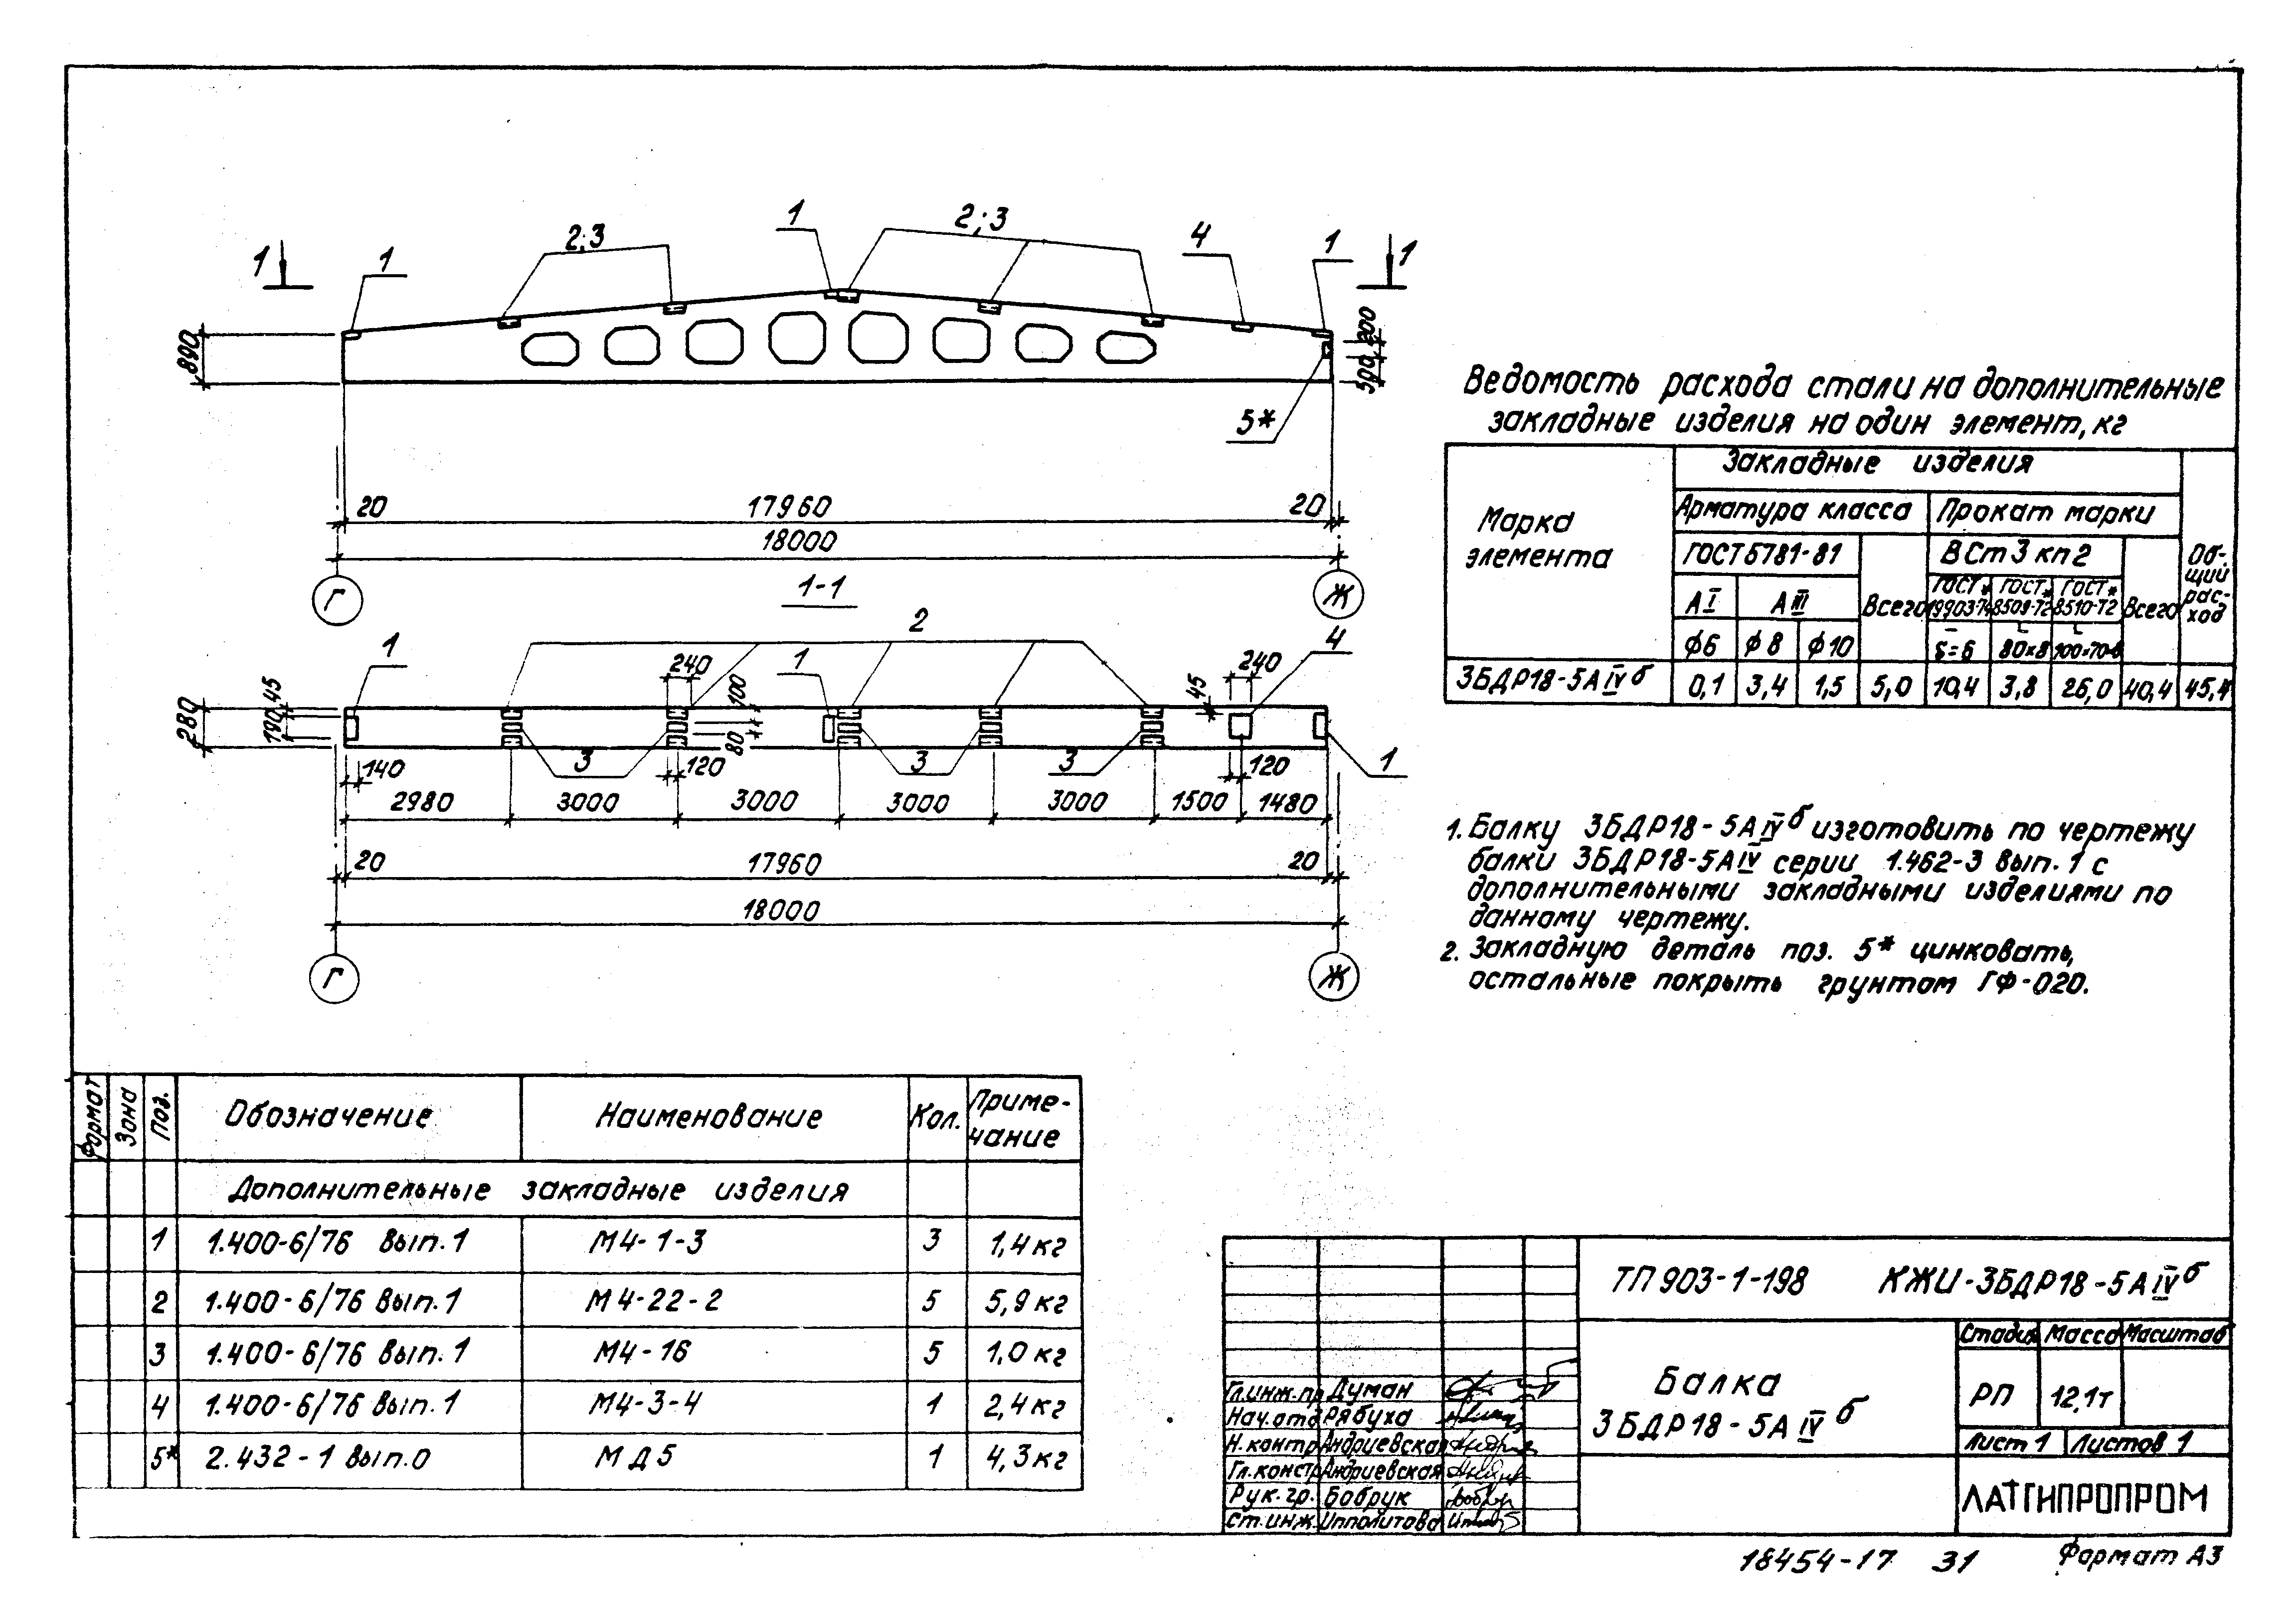 1 1 2;3 1 2;3 4 1 1
890
200
500
5*
20 17960 20
18000
Г Ж
1-1
2
1 240 1 4 240
45 100 45
280 190 80
3 3 3 1
140 120 120
2980 3000 3000 3000 3000 1500 1480
20 17960 20
18000
Г Ж
Ведомость расхода стали на дополнительные
закладные изделия на один элемент, кг
Марка элемента
Закладные изделия
Общий расход
Арматура класса Прокат марки
ГОСТ 5781-81 Всего ВСт3кп2 Всего
АI АIII ГОСТ 19903-74* ГОСТ 8509-72* ГОСТ 8510-72*
ф6 ф8 ф10 δ=6 80×8 100×70×8
3БДР18-5АIVб 0,1 3,4 1,5 5,0 10,4 3,8 26,0 40,4 45,4
1. Балку 3БДР18-5АIVб изготовить по чертежу
балки 3БДР18-5АIV серии 1.462-3 вып. 1 с
дополнительными закладными изделиями по
данному чертежу.
2. Закладную деталь поз. 5* цинковать,
остальные покрыть грунтом ГФ-020.
Формат Зона Поз. Обозначение Наименование Кол. Примечание
Дополнительные закладные изделия
1 1.400-6/76 вып.1 М4-1-3 3 1,4 кг
2 1.400-6/76 вып.1 М4-22-2 5 5,9 кг
3 1.400-6/76 вып.1 М4-16 5 1,0 кг
4 1.400-6/76 вып.1 М4-3-4 1 2,4 кг
5* 2.432-1 вып.0 МД5 1 4,3 кг
ТП 903-1-198 КЖИ-3БДР18-5АIVб
Балка
3БДР18-5АIVб
Стадия Масса Масштаб
РП 12,1т
Лист 1 Листов 1
ЛАТГИПРОПРОМ
Гл.инж.пр Думан
Нач.отд Рябуха
Н.контр Андриевская
Гл.констр Андриевская
Рук.гр. Бобрук
Ст.инж. Ипполитова
18454-17 31 Формат А3